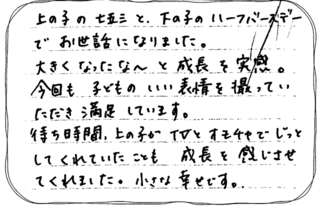 上の子の七五三と、下の子のハーフバースデー
でお世話になりました。
大きくなったな〜と成長を実感。
今回も子どものいい表情を撮ってい
ただき満足しています。
待ち時間、上の子がTVとオモチャでじっと
してくれていたことも成長を感じさせ
てくれました。小さな幸せです。